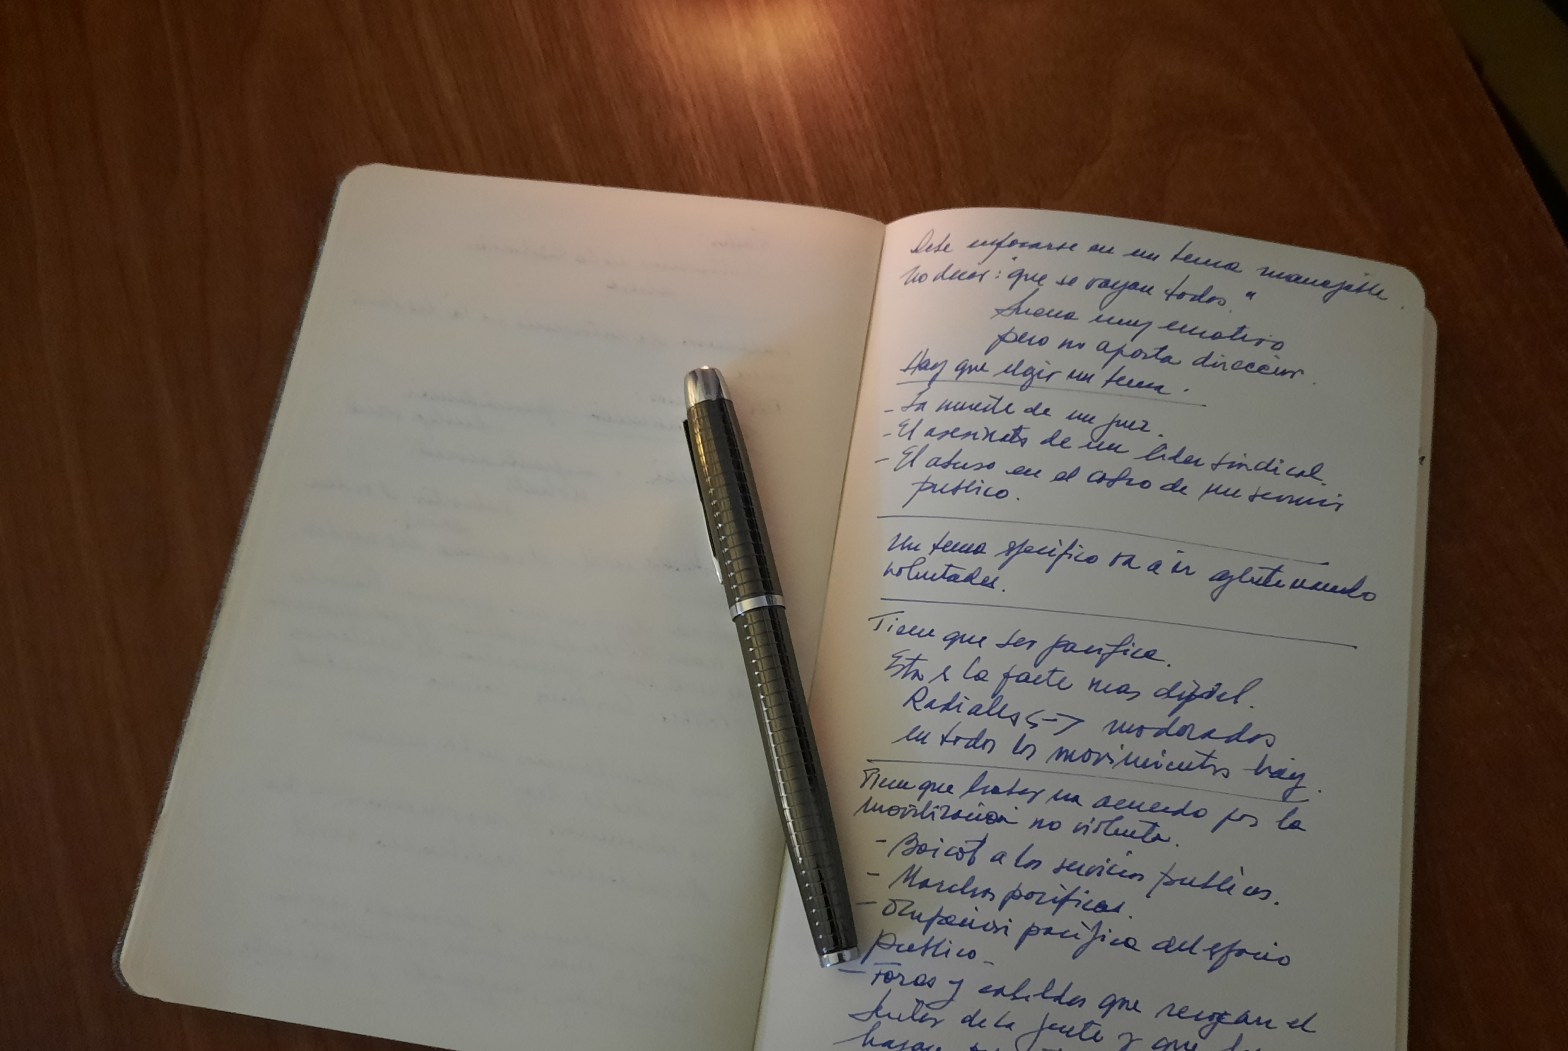 Debe enfocarse en un tema manejable.
No decir: "que se vayan todos."
Suena muy emotivo
pero no aporta dirección.
Hay que elegir un tema.
- La muerte de un juez.
- El asesinato de un líder sindical.
- El abuso en el cobro de un servicio
público.
Un tema específico va a ir aglutinando
voluntades.
Tiene que ser pacífica.
Esta es la parte más difícil.
Radicales <-> moderados
en todos los movimientos hay.
Tiene que haber un acuerdo por la
movilización no violenta.
- Boicot a los servicios públicos.
- Marchas pacíficas.
- Ocupación pacífica del espacio
público.
- Foros y cabildos que recojan el
sentir de la gente y que